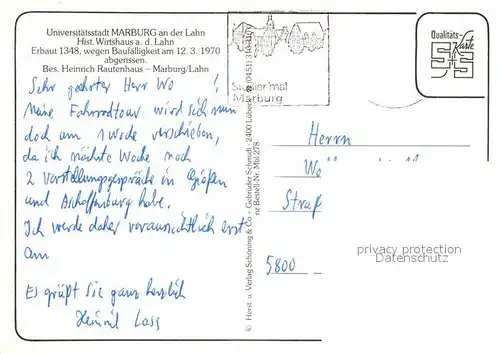 Universitätsstadt MARBURG an der Lahn
Hist. Wirtshaus a. d. Lahn
Erbaut 1348, wegen Baufälligkeit am 12. 3. 1970
abgerissen.
Bes. Heinrich Rautenhaus – Marburg/Lahn
Sehr geehrter Herr Wo !
Meine Fahrradtour wird sich nun
doch um 1 Woche verschieben,
da ich nächste Woche noch
2 Vorstellungsgespräche in Gießen
und Aschaffenburg habe.
Ich werde daher voraussichtlich erst
am
Es grüßt Sie ganz herzlich
Lass
© Herst. u. Verlag Schöning & Co · Gebrüder Schmidt · 2400 Lübeck
Bestell-Nr. Mbl 278
Studier mal
Marburg
Qualitäts-
Karte
S+S
Herrn
Straß
5800
privacy protection
Datenschutz